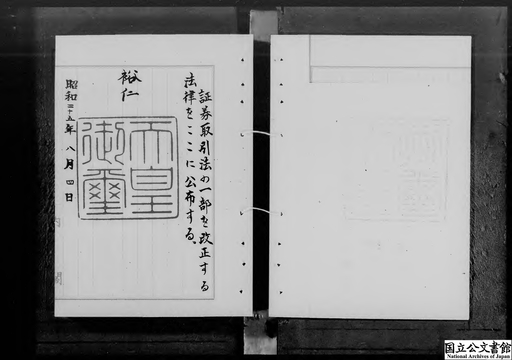 証券取引法の一部を改正する
法律をここに公布する。
裕仁
天皇
御璽
昭和三十五年八月四日
内閣
国立公文書館
National Archives of Japan